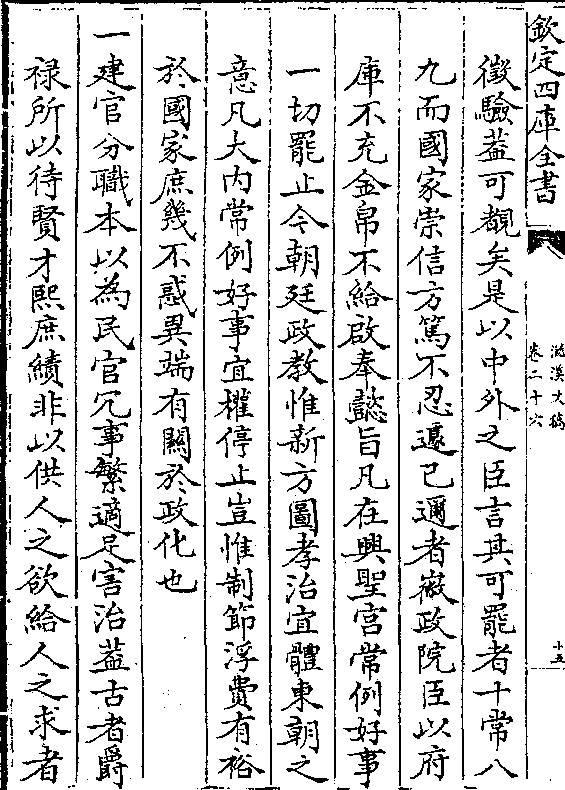 欽定四庫全書
滋溪文稿
卷二十六
十五
徵驗葢可覩矣是以中外之臣言其可罷者十常八
九而國家崇信方篤不忍遽已邇者徽政院臣以府
庫不充金帛不給啟奉懿旨凡在興聖宫常例好事
一切罷止今朝廷政教惟新方圖孝治宜體東朝之
意凡大内常例好事宜權停止豈惟制節浮費有裕
於國家庶幾不惑異端有關於政化也
一建官分職本以為民官冗事繁適足害治葢古者爵
禄所以待賢才熙庶績非以供人之欲給人之求者